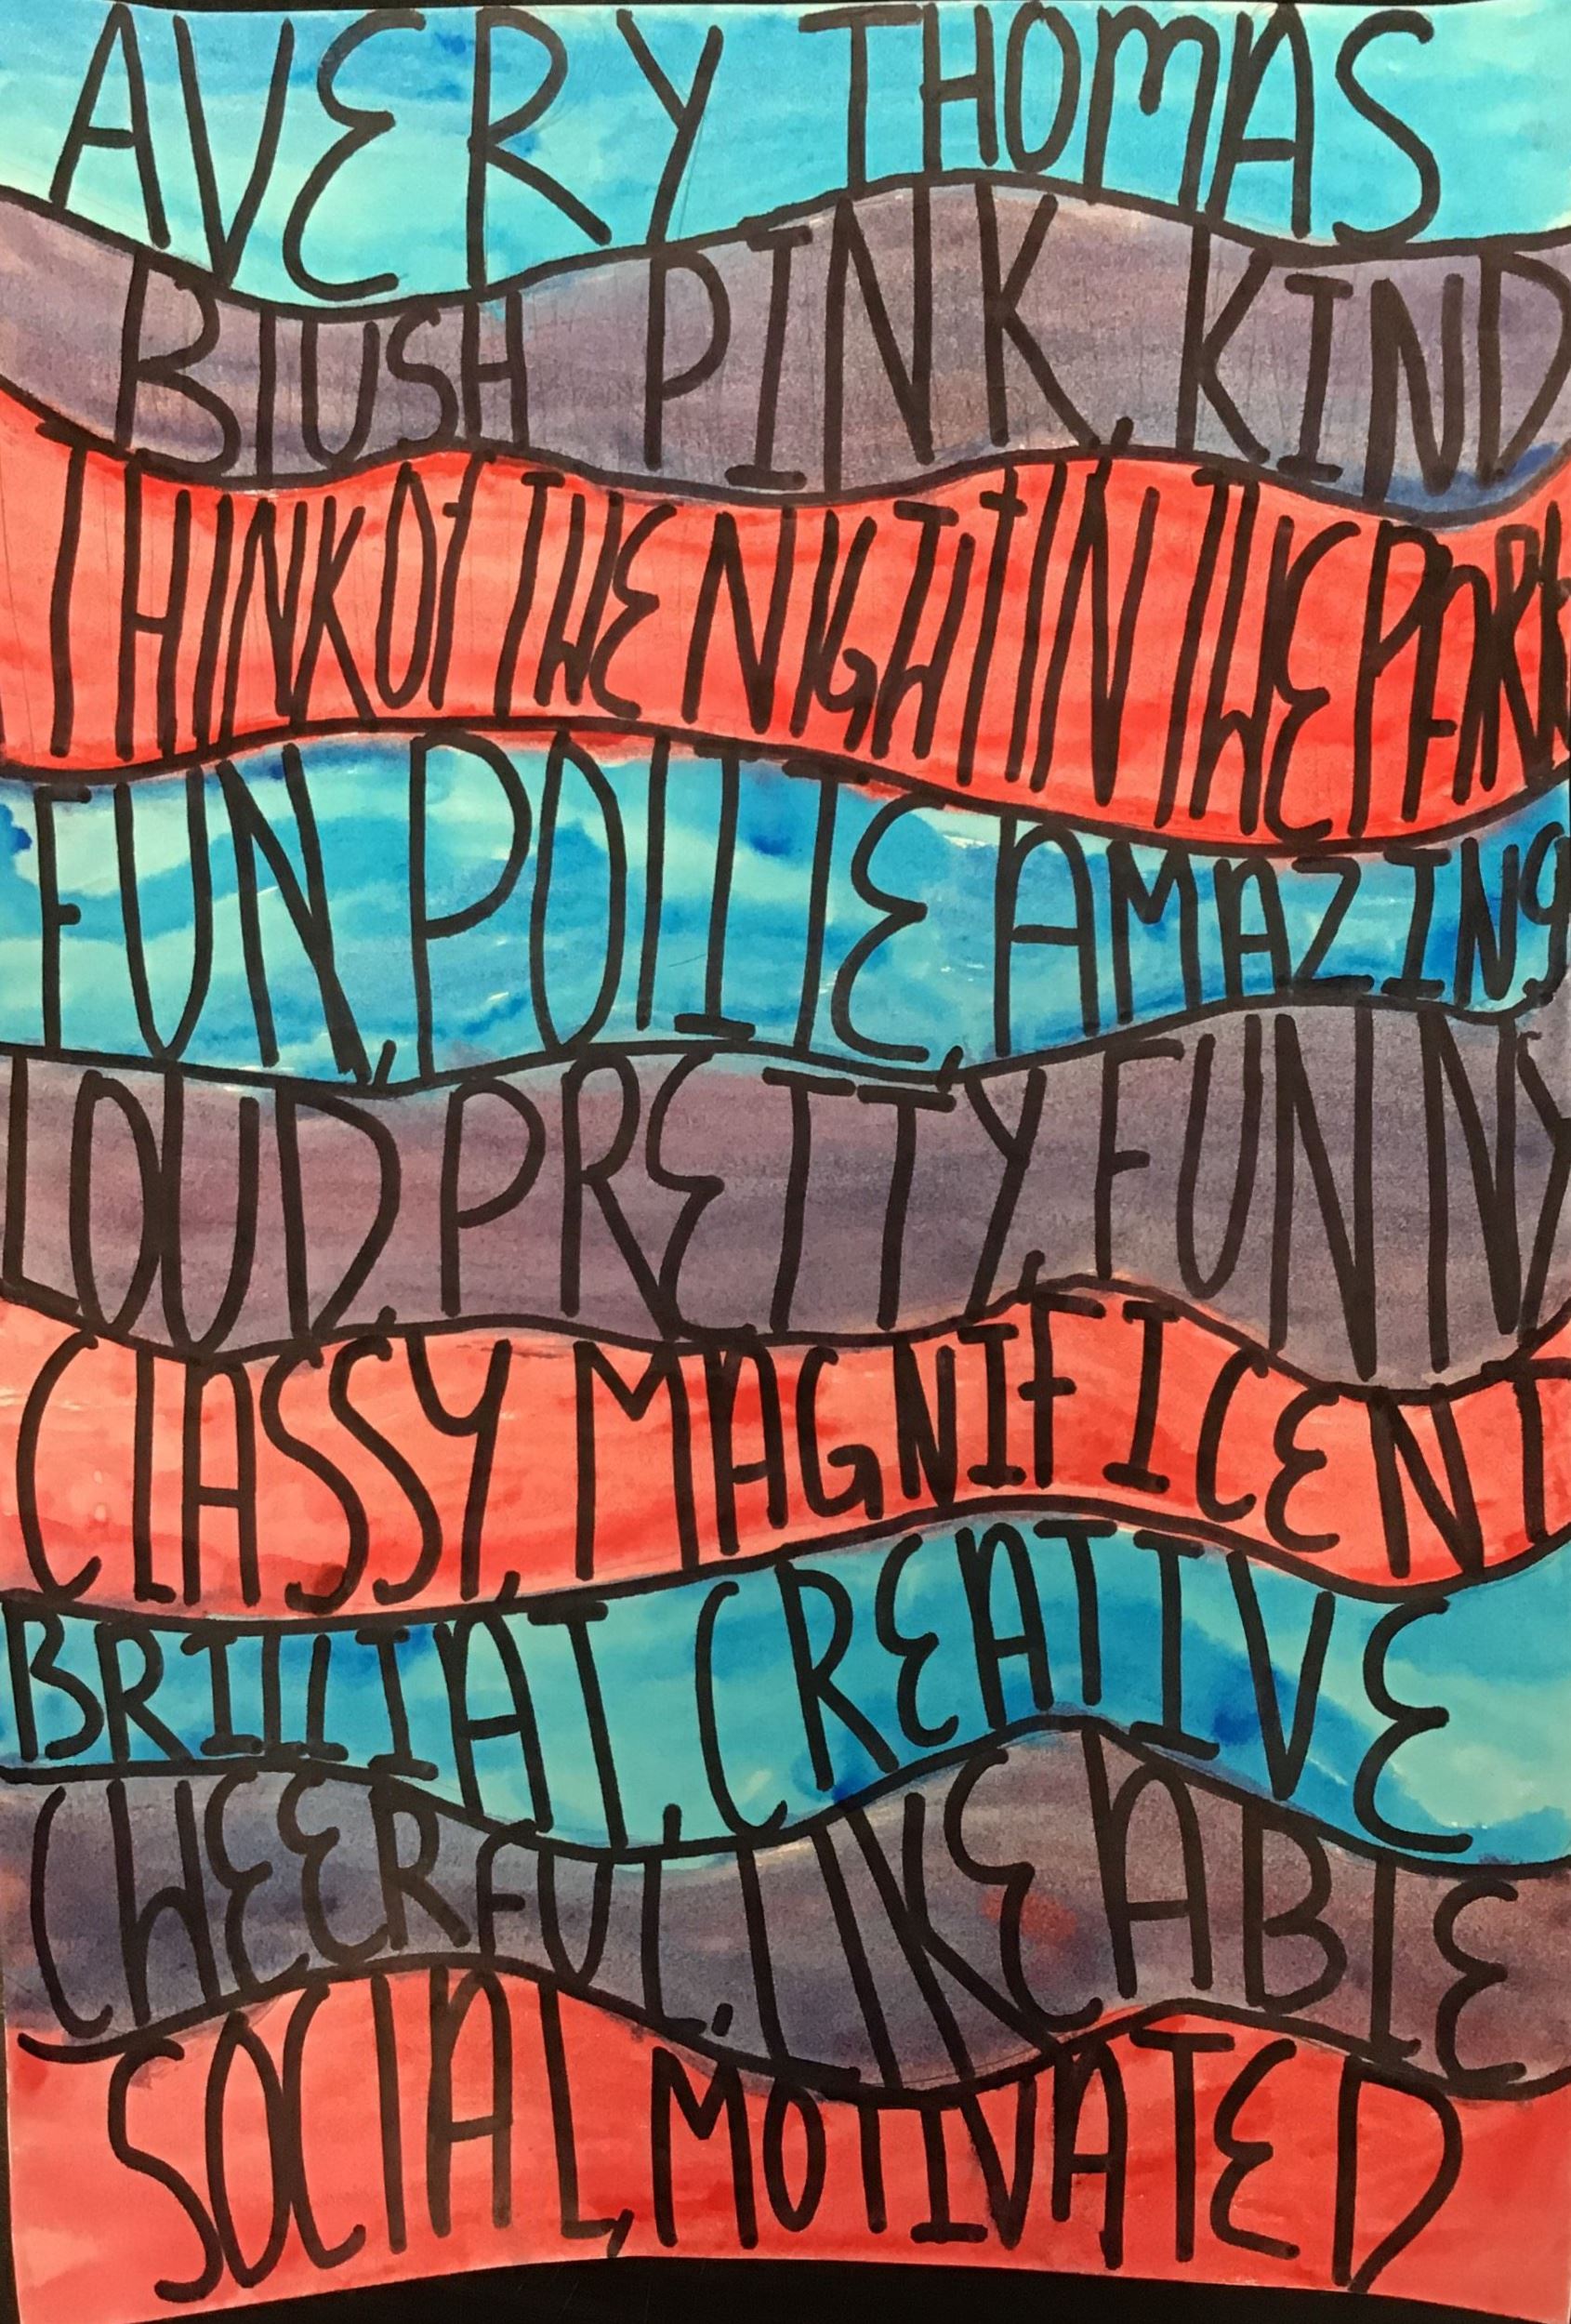 AVERY THOMAS
BlUSH PINK, KIND
THINK Of THE NIGHT IN THE PARK
FUN, POlITE, AMAZINg
LOUD, PRETTY, FUNNY
ClASSY, MAGNIFICENT
BRIllIAT, CREATIVE
CHEERFUL, LIKEABlE
SOCIAL, MOTIVATED